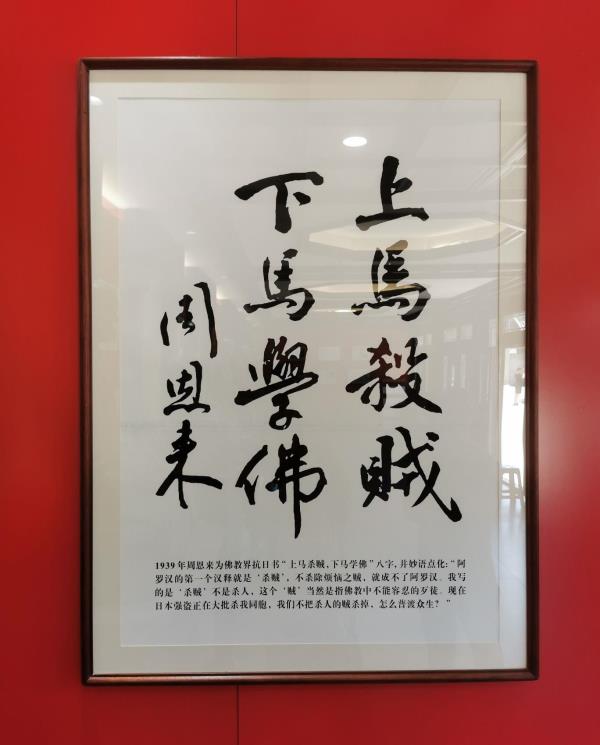 上馬殺賊
下馬學佛
周恩来
1939年周恩来为佛教界抗日书“上马杀贼，下马学佛”八字，并妙语点化：“阿
罗汉的第一个汉释就是‘杀贼’，不杀除烦恼之贼，就成不了阿罗汉。我写
的是‘杀贼’不是杀人，这个‘贼’当然是指佛教中不能容忍的歹徒。现在
日本强盗正在大批杀我同胞，我们不把杀人的贼杀掉，怎么普渡众生？”